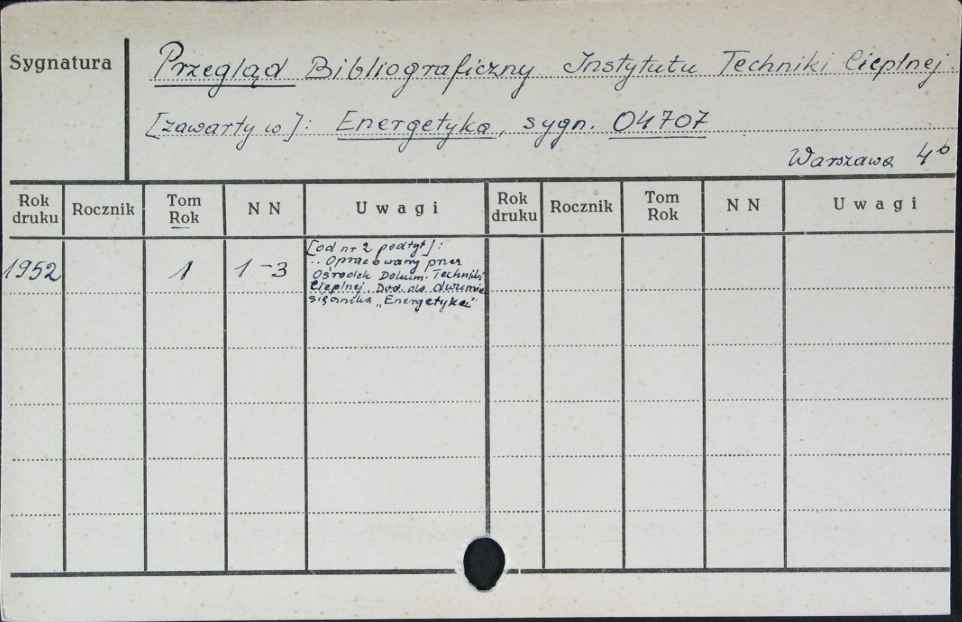 Sygnatura
Przegląd Bibliograficzny Instytutu Techniki Cieplnej.
[zawarty w]: Energetyka, sygn. 04707
Warszawa 4°
Rok druku Rocznik Tom Rok N N Uwagi Rok druku Rocznik Tom Rok N N Uwagi
1952 1 1-3
[od nr 2 podtyt]:
.. Opracowany przez
Ośrodek Dokum. Techniki
Cieplnej. Dod. do dwumie
sięcznika „Energetyka"